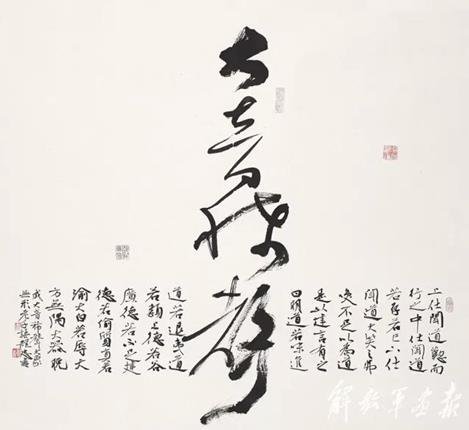 大音希聲
上仕聞道勤而
行之中仕聞道
若存若亡下仕
聞道大笑之弗
笑不足以為道
是以建言有之
曰明道若昧進
道若退夷道
若類上德若谷
廣德若不足建
德若偷質真若
渝大白若辱大
方無隅大器晚
成大音希聲大象
無形老子語
解放军画报